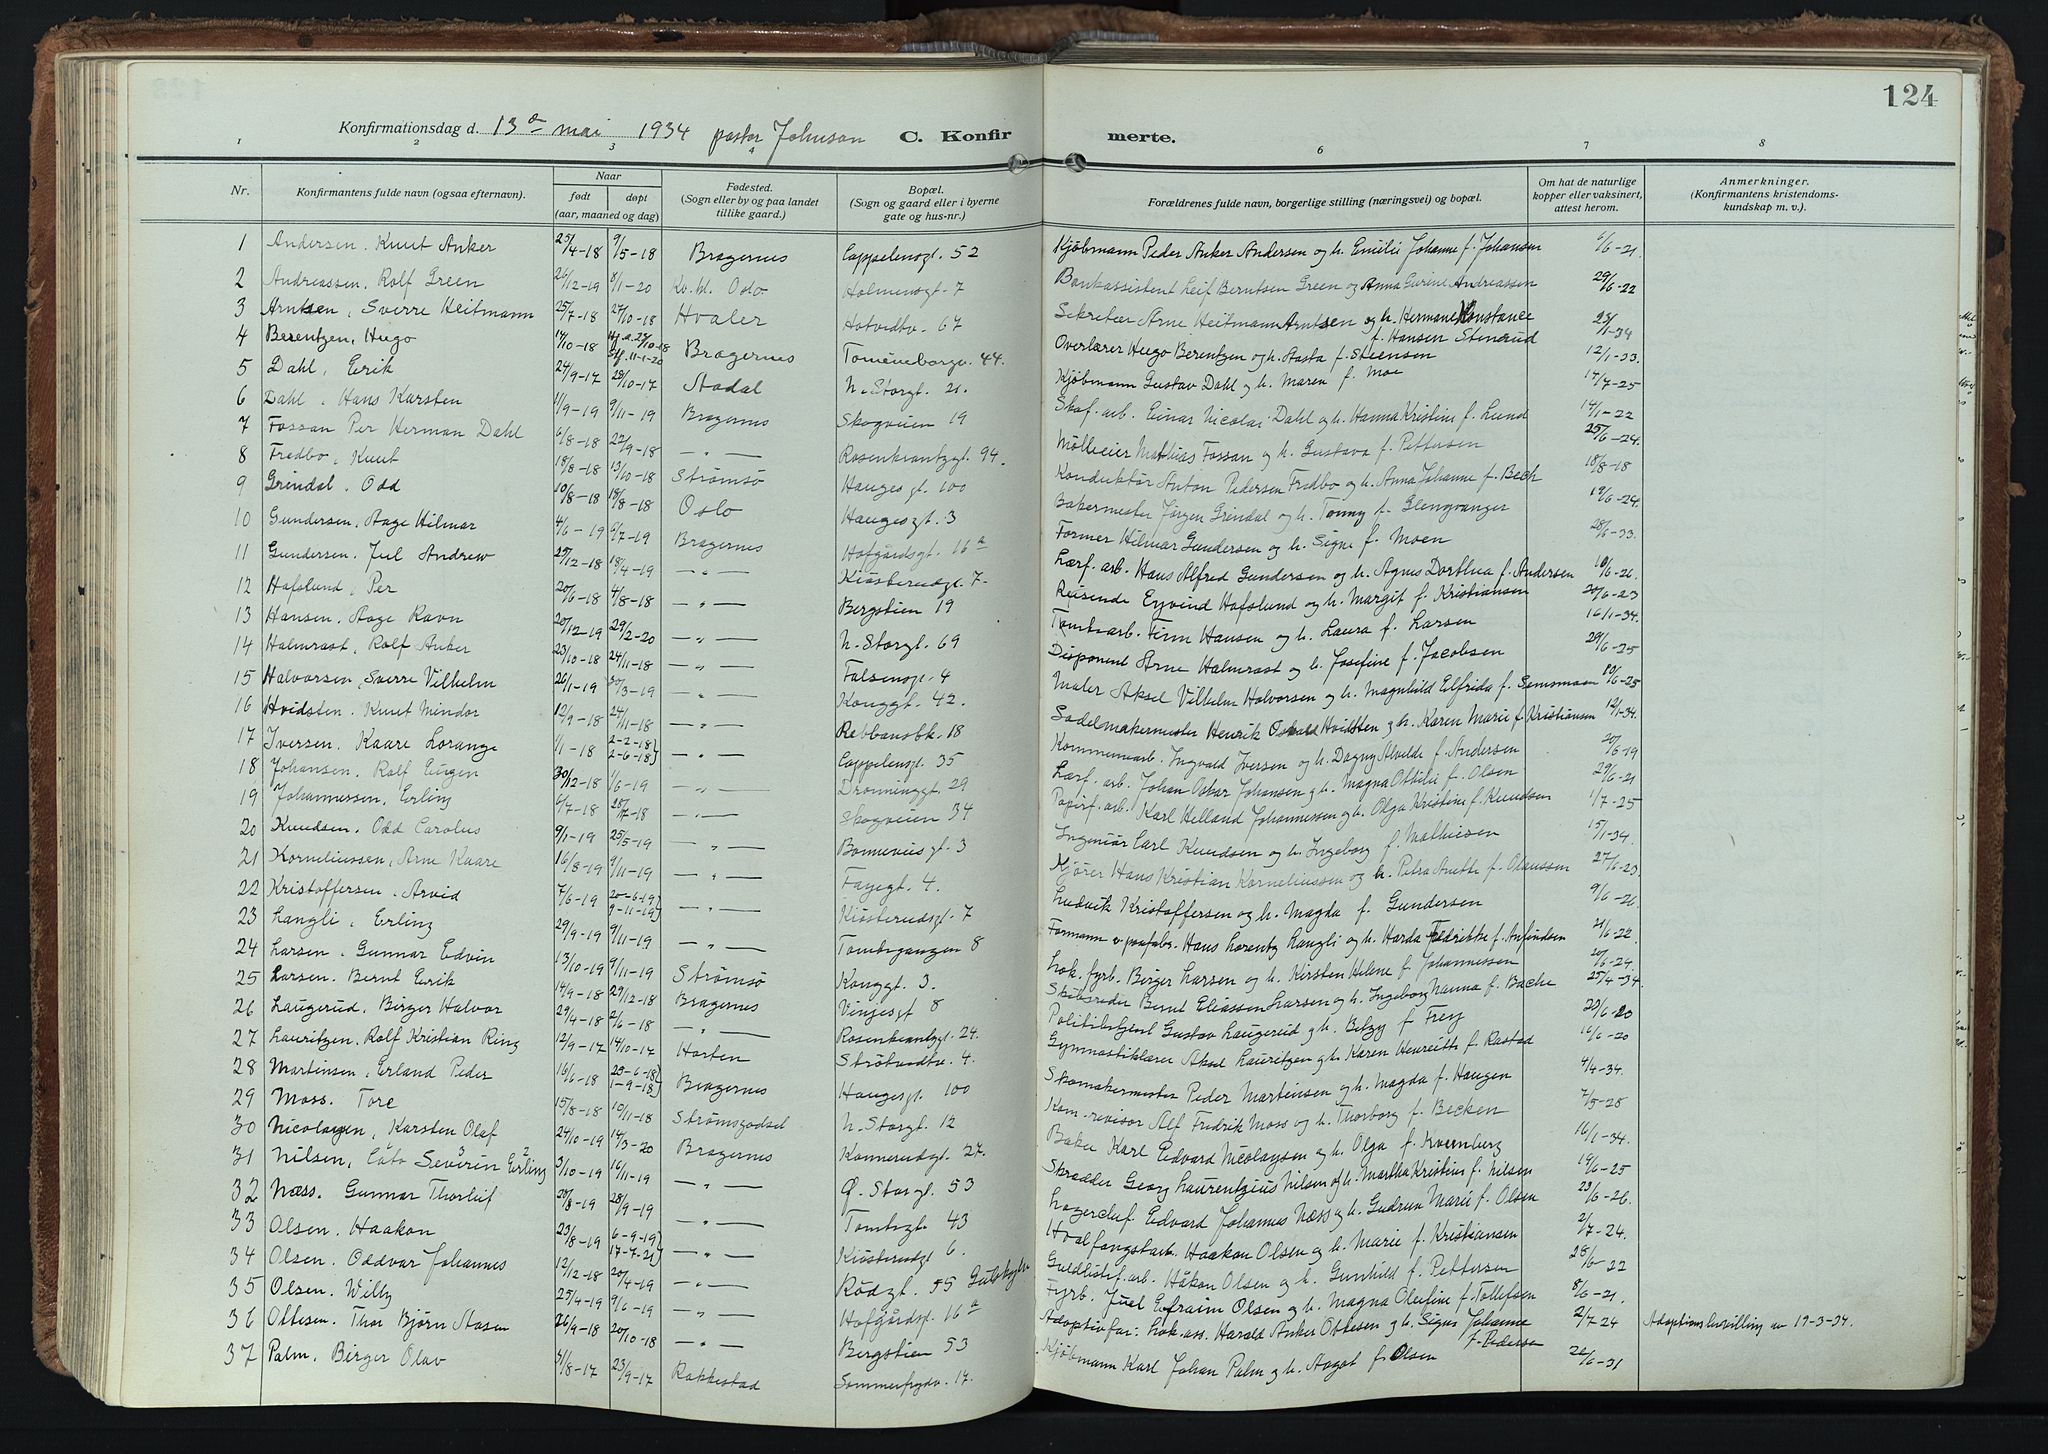 124
Konfirmationsdag d. 13de mai 1934 pastor Johnson C. Konfirmerte.
1 2 3 4 6 7 8
Nr. Konfirmantens fulde navn (ogsaa efternavn). Naar født døpt (aar, maaned og dag) Fødested. (Sogn eller by og paa landet tillike gaard.) Bopæl. (Sogn og gaard eller i byerne gate og hus-nr.) Forældrenes fulde navn, borgerlige stilling (næringsvei) og bopæl. Om hat de naturlige kopper eller vaksinert, attest herom. Anmerkninger. (Konfirmantens kristendomskundskap m. v.).
1 Andersen, Knut Anker 25/4-18 9/5-18 Bragernes Cappelensgt. 52 Kjøbmann Peder Anker Andersen og h. Emilie Johanne f. Johansen 6/6-21
2 Andreassen, Rolf Green 26/12-19 8/1-20 Kv.kl. Oslo Holmensgt. 7 Bankassistent Leif Berntsen Green og Anna Gurine Andreassen 29/6-22
3 Arntsen, Sverre Heitmann 25/7-18 27/10-18 Hvaler Hotvedtv. 67 Sekretær Arne Heitmann Arntsen og h. Hermane Konstance f. Hansen Stenrud 23/1-34
4 Berentzen, Hugo 17/10-18 Hj.d. 23/10-18 Stf. 11-1-20 Bragernes Tomineborgv. 44. Overlærer Hugo Berentzen og h. Aasta f. Steensen 12/1-33.
5 Dahl, Erik 24/9-17 28/10-17 Aadal N. Storgt. 21. Kjøbmann Gustav Dahl og h. Maren f. Moe 15/7-25
6 Dahl, Hans Karsten 11/9-19 9/11-19 Bragernes Skogveien 19 Skof. arb. Einar Nicolai Dahl og h. Hanna Kristine f. Lund 14/1-22
7 Fossan Per Herman Dahl 6/8-18 22/9-18 — " — Rosenkrantzgt. 94. Mølleeier Mathias Fossan og h. Gustava f. Pettersen 25/6-24.
8 Fredbo, Knut 18/8-18 13/10-18 Strømsø Haugesgt. 100 Konduktør Anton Pedersen Fredbo og h. Anna Johanne f. Bech 18/8-18
9 Grindal, Odd 10/8-18 18/8-18 Oslo Haugesgt. 3 Bakermester Jørgen Grindal og h. Tonny f. Glengvanger 19/6-24.
10 Gundersen, Aage Hilmar 4/6-19 6/7-19 Bragernes Hofgårdsgt. 16a Former Hilmar Gundersen og h. Signe f. Moen 28/6-33.
11 Gundersen, Jul Andrew 29/12-18 18/4-19 — " — Kiøsterudgt. 7. Lærf. arb. Hans Alfred Gundersen og h. Agnes Dorthea f. Andersen 10/6-26.
12 Hafslund, Per 20/6-18 4/8-18 — " — Bergstien 19 Reisende Eyvind Hafslund og h. Margit f. Kristiansen 20/6-23
13 Hansen, Aage Ravn 20/12-19 29/2-20 — " — N. Storgt. 69 Tomtearb. Finn Hansen og h. Laura f. Larsen 16/1-34.
14 Halmrast, Rolf Anker 23/10-18 24/11-18 — " — Falsensgt. 4 Disponent Arne Halmrast og h. Josefine f. Jacobsen 29/6-25
15 Halvorsen, Sverre Vilhelm 26/1-19 30/3-19 — " — Konggt. 42. Maler Aksel Vilhelm Halvorsen og h. Magnhild Elfrida f. Semsmoen 10/6-25
16 Hvidsten, Knut Mindor 12/9-18 24/11-18 — " — Røbbansbk. 18 Sadelmakermester Henrik Oskar Hvidsten og h. Karen Marie f. Kristiansen 12/1-34.
17 Iversen, Kaare Lorange 1/1-18 2-2-18) 2-6-18) — " — Cappelensgt. 35 Kommunearb. Ingvald Iversen og h. Dagny Alvilde f. Andersen 20/6-19
18 Johansen, Rolf Eugen 30/12-18 1/6-19 — " — Dronninggt. 29 Lærf. arb. Johan Oskar Johansen og h. Magna Ottilie f. Olsen 29/6-21
19 Johannessen, Erling 6/7-18 28/7-18 — " — Skogveien 34 Papirf. arb. Karl Helland Johannessen og h. Olga Kristine f. Knudsen 1/7-25
20 Knudsen, Odd Carolus 9/1-19 25/5-19 — " — Bonneviesgt. 3 Ingeniør Carl Knudsen og h. Ingeborg f. Mathiesen 15/1-34.
21 Korneliussen, Arne Kaare 16/8-19 9/11-19 — " — Fayegt. 4. Kjører Hans Kristian Korneliussen og h. Petra Anette f. Olaussen 27/6-23.
22 Kristoffersen, Arvid 7/6-19 20-6-19) 9-11-19) — " — Kiøsterudsgt. 7 Ludvik Kristoffersen og h. Magda f. Gundersen 9/6-26
23 Langli, Erling 29/9-19 9/11-19 — " — Tomtegangen 8 Formann v. papfabr. Hans Lorentz Langli og h. Harda Fredrikke f. Anfindsen 21/6-22.
24 Larsen, Gunnar Edvin 13/10-19 9/11-19 Strømsø Konggt. 3. Lok. fyrb. Birger Larsen og h. Kirsten Helene f. Johannessen 20/6-24
25 Larsen, Bernt Erik 14/9-18 29/12-18 Bragernes Vinjesgt 8 Skibsreder Bernt Eliassen Larsen og h. Ingeborg Nanna f. Bache 25/4-34.
26 Laugerud, Birger Halvor 29/4-18 2/6-18 — " — Rosenkrantzgt. 24. Politibetjent Gustav Laugerud og h. Betzy f. Frey 23/6-20
27 Lauritzen, Rolf Kristian Ring 12/9-17 14/10-17 Horten Strøtvedtv. 4. Gymnastiklærer Aksel Lauritzen og h. Karen Henriette f. Rastad 16/6-20
28 Martinsen, Erland Peder 16/6-18 23-6-18) 1-9-18) Bragernes Haugesgt. 100 Skomakermester Peder Martinsen og h. Magda f. Haugen 4/4-34.
29 Moss, Tore 15/8-18 10/11-18 Strømsgodset N. Storgt. 12 Kom. revisor Alf Fredrik Moss og h. Thorborg f. Becken 7/5-28
30 Nicolaysen, Karsten Olaf 24/10-19 14/3-20 Bragernes Konnerudgt. 27. Baker Karl Edvard Nicolaysen og h. Olga f. Kvernberg 16/1-34.
31 Nilsen, Cato Severin Erling 3/10-19 16/11-19 — " — Ø. Storgt. 53 Skredder Georg Laurentzius Nilsen og h. Martha Kristine f. Nilsen 19/6-25
32 Næss, Gunnar Thorleif 20/8-19 28/9-19 — " — Tomtegt. 43 Lagerchef Edvard Johannes Næss og h. Gudrun Marie f. Olsen 23/6-26.
33 Olsen, Haakon 23/8-19 6-9-19) 17-7-21) — " — Kiøsterudgt 6. Hvalfangstarb. Haakon Olsen og h. Marie f. Kristiansen 2/7-24.
34 Olsen, Oddvar Johannes 12/12-18 20/4-19 — " — Rødgt. 55 Guldlistef. arb. Håkon Olsen og h. Gunhild f. Pettersen 28/6-22
35 Olsen, Willy 25/4-19 9/6-19 — " — Hofgårdsgt. 16a Fyrb. Juel Efraim Olsen og h. Magna Olefine f. Tollefsen 8/6-21.
36 Ottesen, Thor Bjørn Aasen 26/9-18 20/10-18 — " — Bergstien 53 Adoptivfar: Lok. ass. Harald Anker Ottesen og h. Signe Johanne f. Pedersen 2/7-24 Adoptionsbevilling av 19-3-34.
37 Palm, Birger Olav 31/8-17 23/9-17 Rakkestad Sommerfrydv. 17. Kjøbmann Karl Johan Palm og h. Aagot f. Olsen 26/6-31